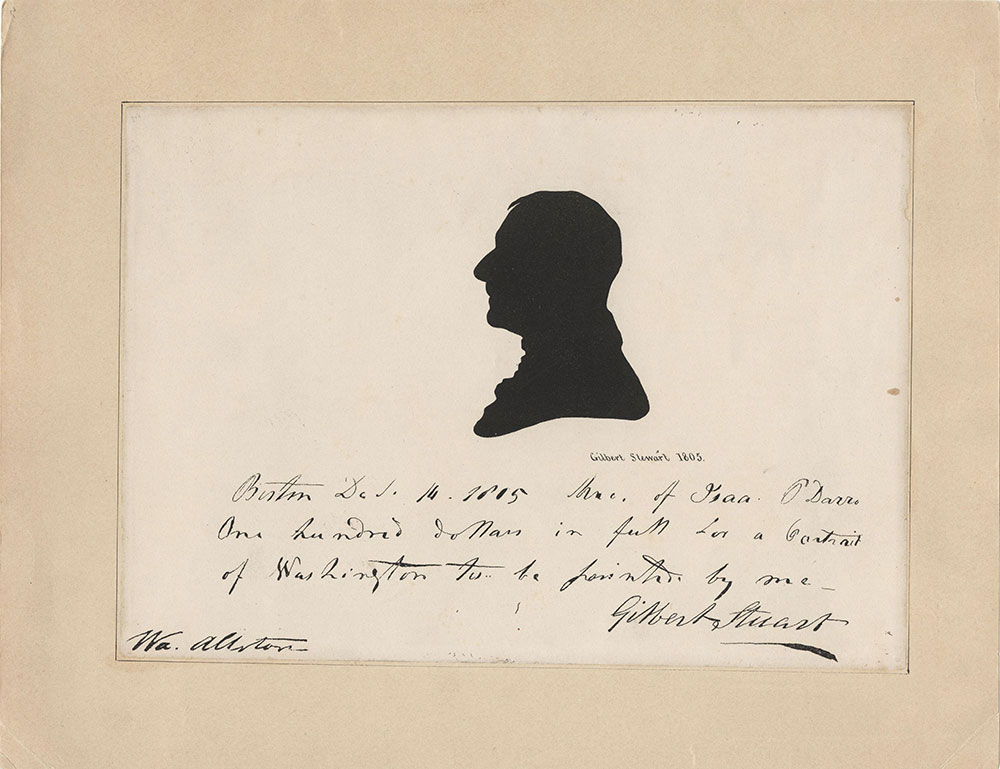 Gilbert Stewart 1805.
Boston 14. 1805 of Isaa. P Davis
One hundred dollars in full for a Portrait
of Washington to be painted by me _
Gilbert Stuart
Wa. Allston